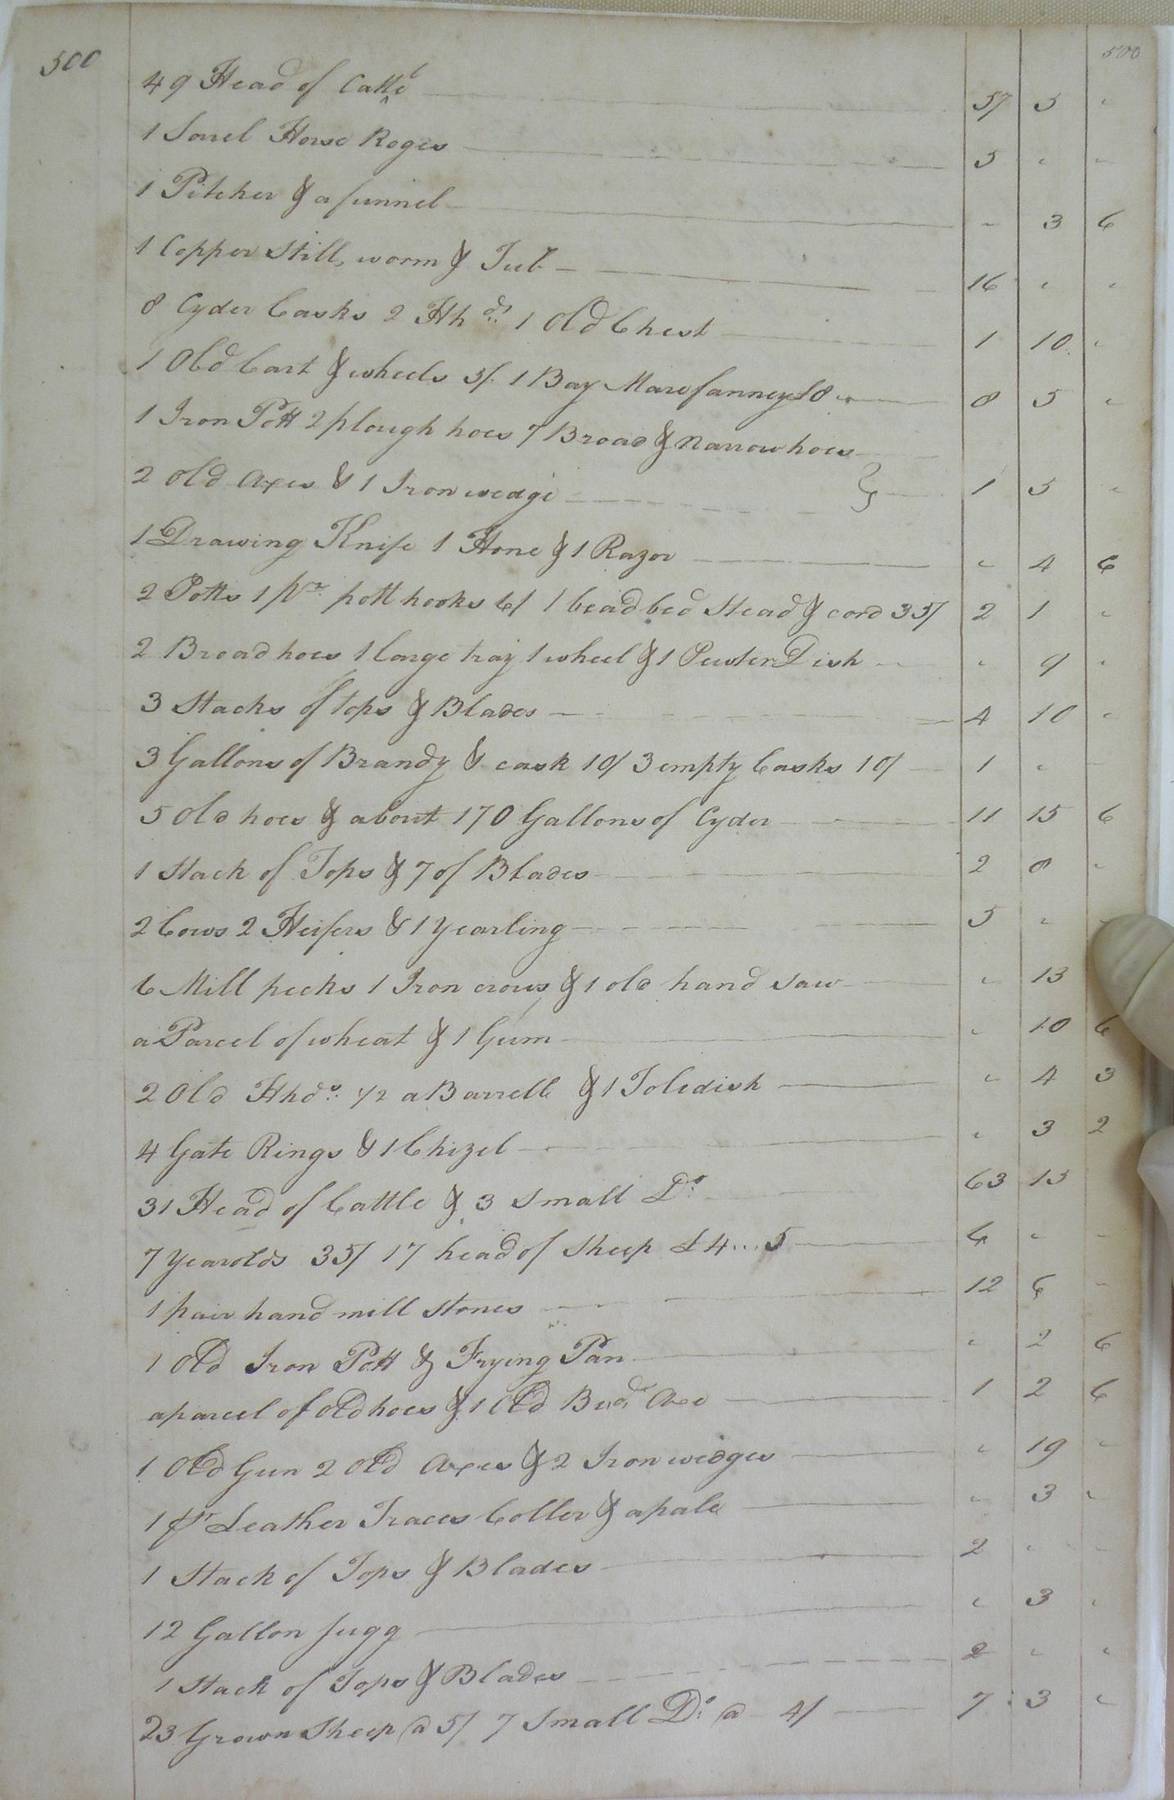 500 500
49 Head of Cattle 57 5 "
1 Sorrel Horse Roger 5 " "
1 Pitcher & a funnel " 3 6
1 Copper Still, worm & Tub 16 " "
8 Cyder Casks 2 Hhds. 1 Old Chest 1 10 "
1 Old Cart & wheels 5/. 1 Bay Mare fanney £8 8 5 "
1 Iron Pott 2 plough hoes 7 Broad & Narrow hoes
2 Old Axes & 1 Iron wedge } 1 5 "
1 Drawing Knife 1 Hone & 1 Razor " 4 6
2 Potts 1 Pr. pott hooks 6/ 1 bead bed Stead & cord 35/ 2 1 "
2 Broad hoes 1 large tray 1 wheel & 1 Pewter Dish " 9 "
3 Stacks of tops & Blades 4 10 "
3 Gallons of Brandy & cask 10/ 3 empty Casks 10/ 1 "
5 Old hoes & about 170 Gallons of Cyder 11 15 6
1 Stack of Tops & 7 of Blades 2 8 "
2 Cows 2 Heifers & 1 Yearling 5 " "
6 Mill pecks 1 Iron crows & 1 old hand saw " 13
a Parcel of wheat & 1 Gum " 10 6
2 Old Hhds. 1/2 a Barrell & 1 Toledish " 4 3
4 Gate Rings & 1 Chizel " 3 2
31 Head of Cattle & 3 Small Do. 63 15
7 Yearolds 35/ 17 head of Sheep £4...5 6 " "
1 pair hand mill stones 12 6 "
1 Old Iron Pott & Frying Pan " 2 6
a parcel of old hoes & 1 Old Axe 1 2 6
1 Old Gun 2 Old Axes & 2 Iron wedges " 19 "
1 pr Leather Traces Coller & a pale " 3 "
1 Stack of Tops & Blades 2 " "
12 Gallon Jugg " 3 "
1 Stack of Tops & Blades 2 " "
23 Grown Sheep @ 5/ 7 Small Do. @ 4/ 7 3 "